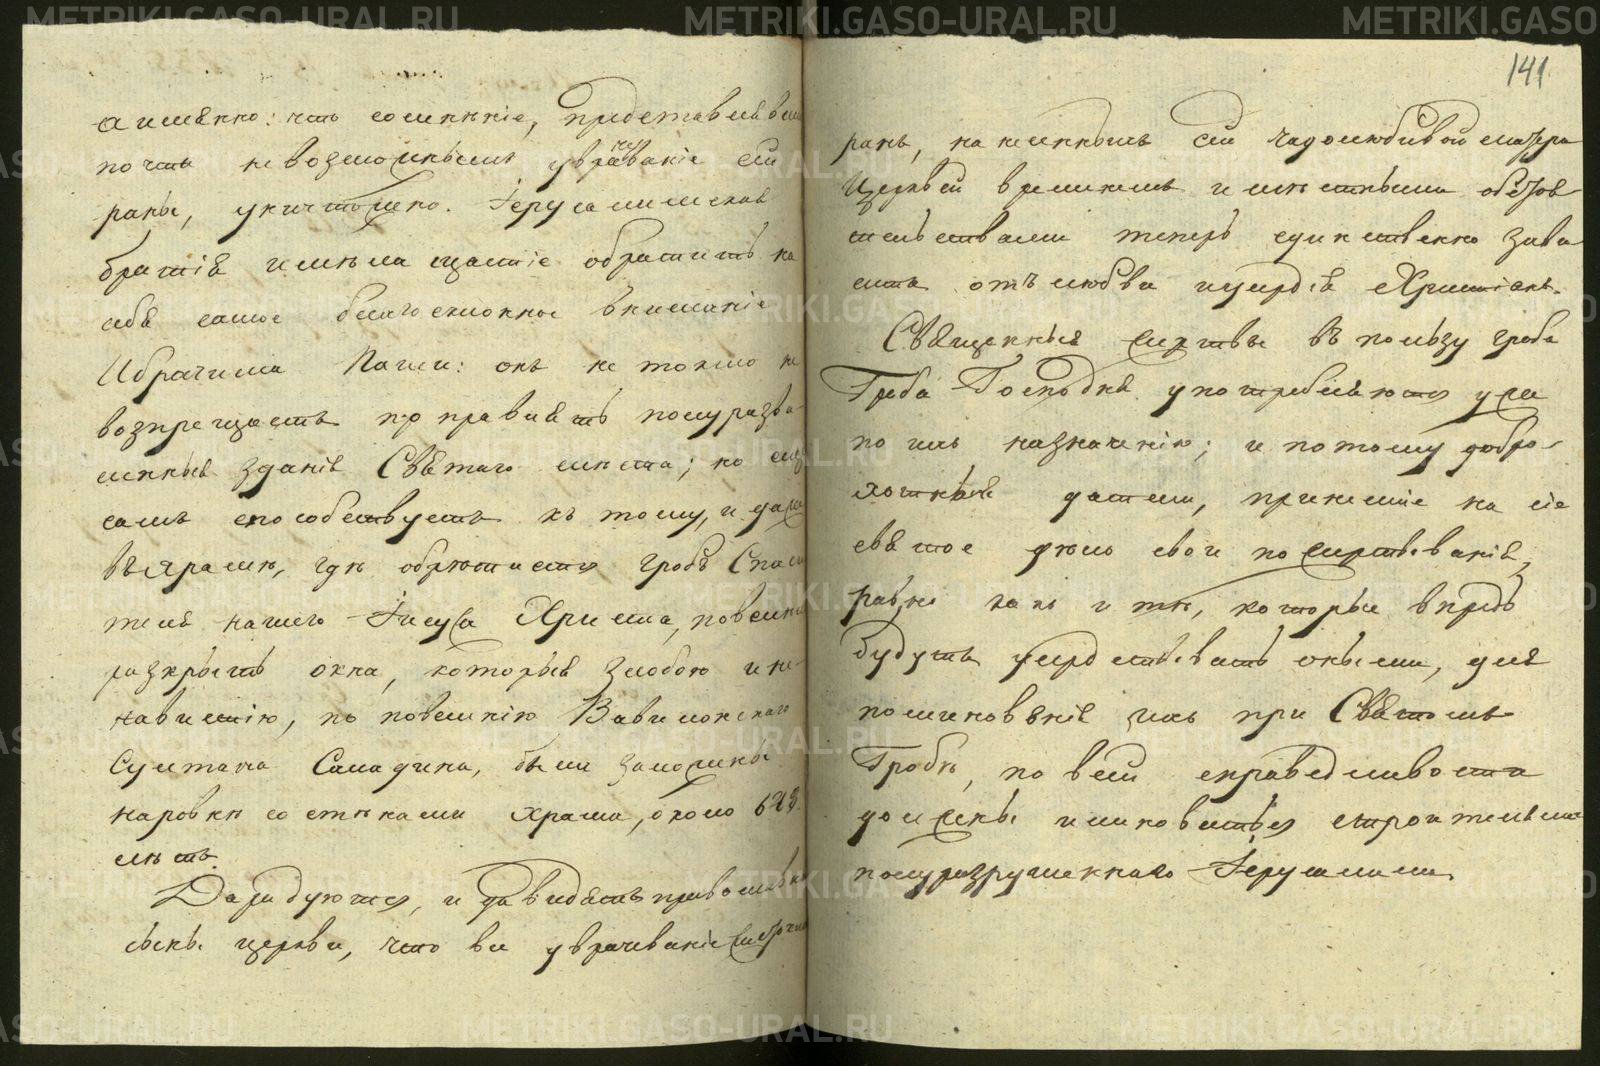 а именно: что сомнѣніе, представлявшее
почти невозможнымъ уврачеваніе сей
раны, уничтожено. Іерусалимская
братія имѣла щастіе обратить на
себя самое благосклонное вниманіе
Ибрагима Паши: онъ не токмо не
возпрещаетъ поправлять полуразва-
ленныя зданія Святаго мѣста; но еще
самъ способствуетъ къ тому, и даже
въ храмѣ, гдѣ обрѣтается гробъ Спаси
теля нашего Іисуса Христа, повелѣлъ
разкрыть окна, которыя злобою и не-
навистію, по повелѣнію Вавилонскаго
Султана Саладина, были заложены
наровнѣ со стѣнами храма, около 648.
лѣтъ.
Да радуются, и да видятъ православные
сыны церкви, что все уврачеваніе
141
ранъ, нанесенныхъ сей чадолюбивой матери
Церквей временемъ и мѣстными обстоя
тельствами теперь единственно зави
ситъ отъ любви и усердія Христіанъ.
Священныя жертвы въ пользу гроба
Гроба Господня употребляются уже
по ихъ назначенію; и потому добро-
хотные датели, принесшіе на сіе
святое дѣло свои пожертвованія,
равно какъ и тѣ, которые впредь
будутъ усердствовать оными, для
поминовенія ихъ при Святомъ
Гробѣ, по всей справедливости
должны именоваться строительми
полуразрушеннаго Іерусалима.
METRIKI.GASO-URAL.RU